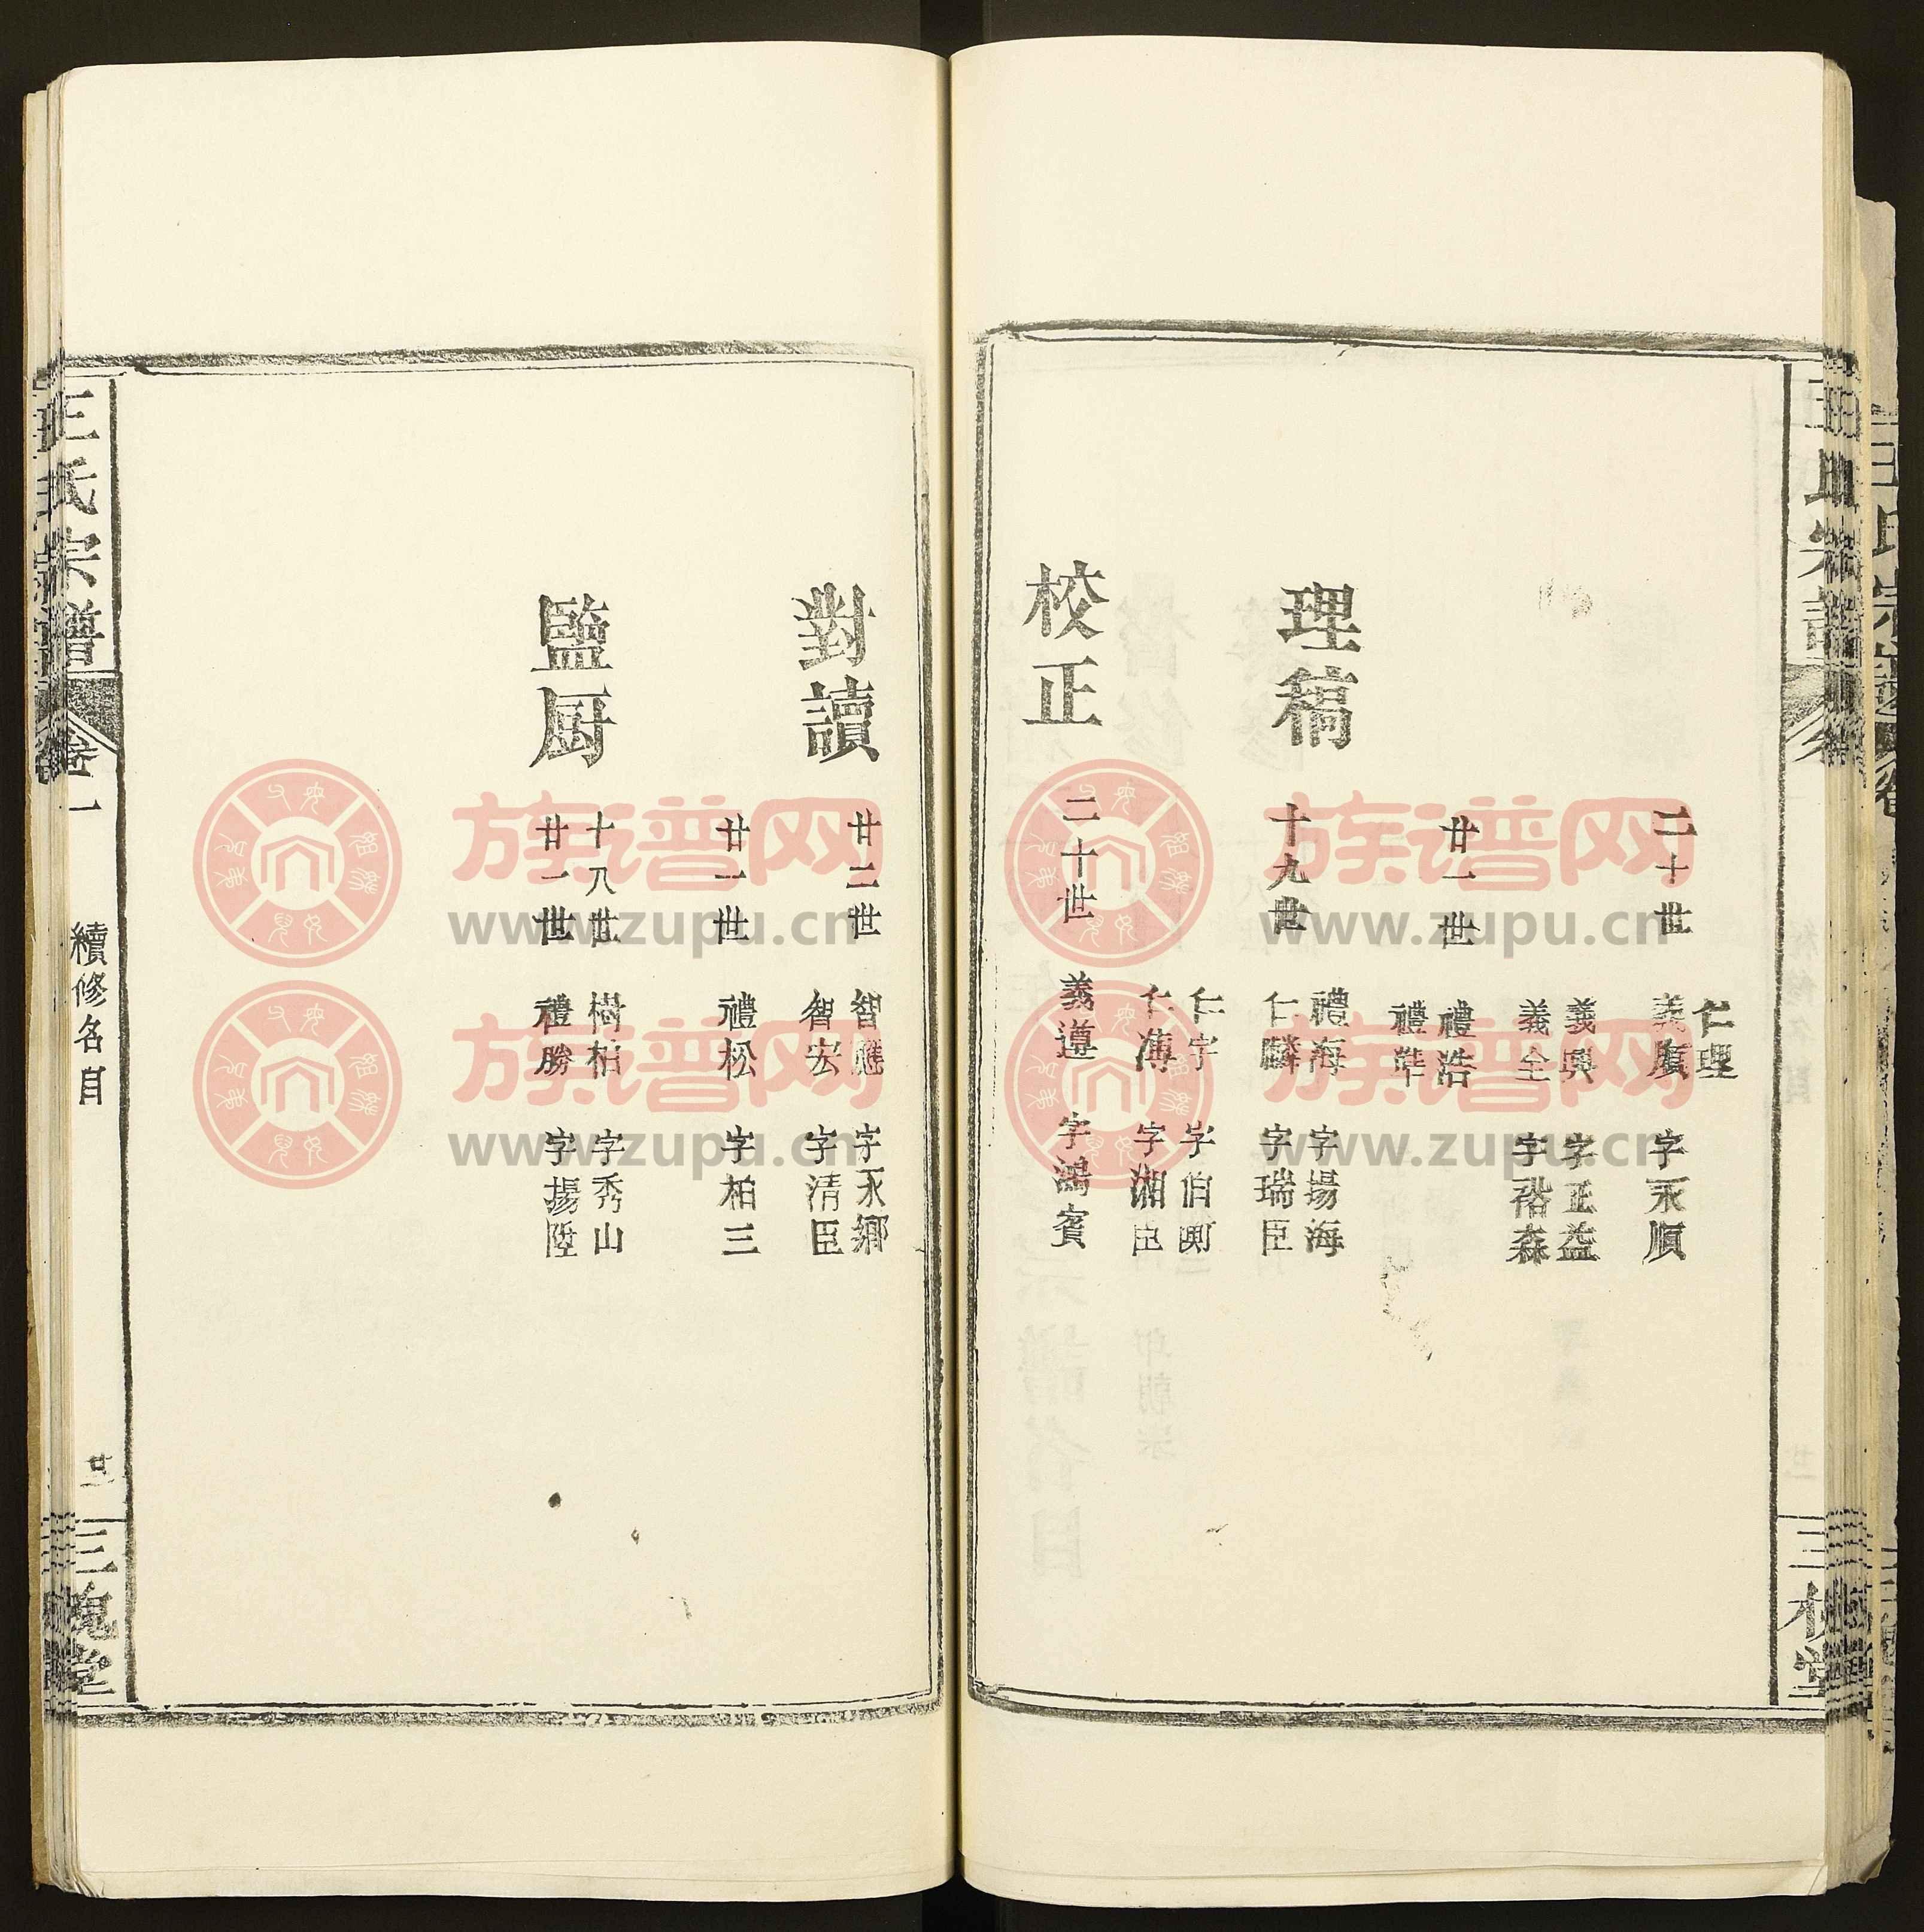 王氏宗譜
三槐堂
仁理
二十世 義廣 字永順
義興 字正益
義全 字裕森
廿一世 禮浩
禮華
理稿
禮海 字揚海
十九世 仁麟 字瑞臣
仁宇 字伯
仁溥 字湘臣
校正
二十世 義遵 字鴻賓
對讀
廿二世 智應 字永鄉
智宏 字清臣
廿一世 禮松 字柏三
監厨
十八世 樹柏 字秀山
廿一世 禮勝 字揚陞
王氏宗譜 卷一 續修名目 三槐堂
族谱网
www.zupu.cn
族谱网
www.zupu.cn
族谱网
www.zupu.cn
族谱网
www.zupu.cn